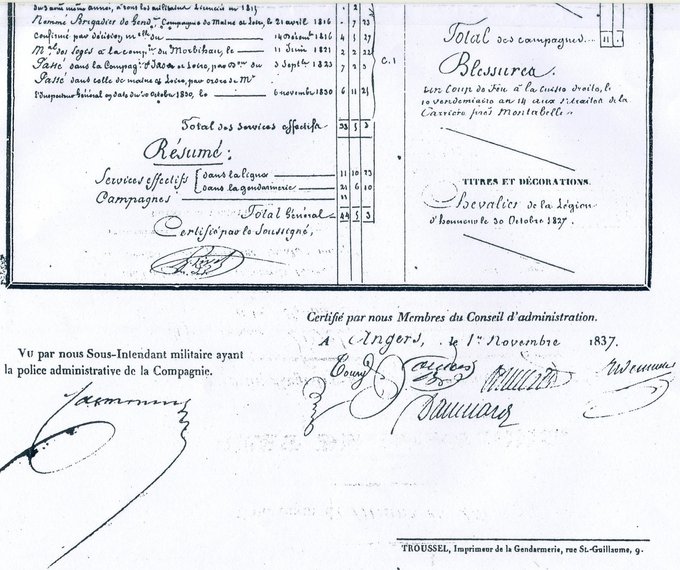 du 3 août même année, a tous les militaires Licencié en 1815
Nommé Brigadier de Gend.ie Compagnie de Maine et Loire, le 21 avril 1816 . 7 23
confirmé par décision m.elle du 14 1816 4 5 27
M.al des Loges a la comp.ie du Morbihan, le 11 Juin 1821 2 2 22
Passé dans la Compag.ie et Loire, par du 3 Sept.bre 1823 7 2 3
C. 1
Passé dans celle de maine et Loire, par ordre de M.r
l'Inspecteur Général en date du 30 Octobre 1830, le 6 novembre 1830 6 11 25
Total des services effectifs 33 5 3
Résumé :
Services effectifs
dans la ligne 11 10 23
dans la gendarmerie 21 6 10
Campagnes 11
Total Général 44 5 3
Certifié par le Soussigné,
Total des campagnes 11
Blessures.
un Coup de feu à la cuisse droite, le
10 vendemiaire an 14 aux de la
Carrière près Montabelle
TITRES ET DÉCORATIONS.
Chevalier de la Légion
d'honneur le 30 Octobre 1827.
Certifié par nous Membres du Conseil d'administration.
A Angers, le 1er Novembre 1837.
VU par nous Sous-Intendant militaire ayant
la police administrative de la Compagnie.
TROUSSEL, Imprimeur de la Gendarmerie, rue St.-Guillaume, 9.